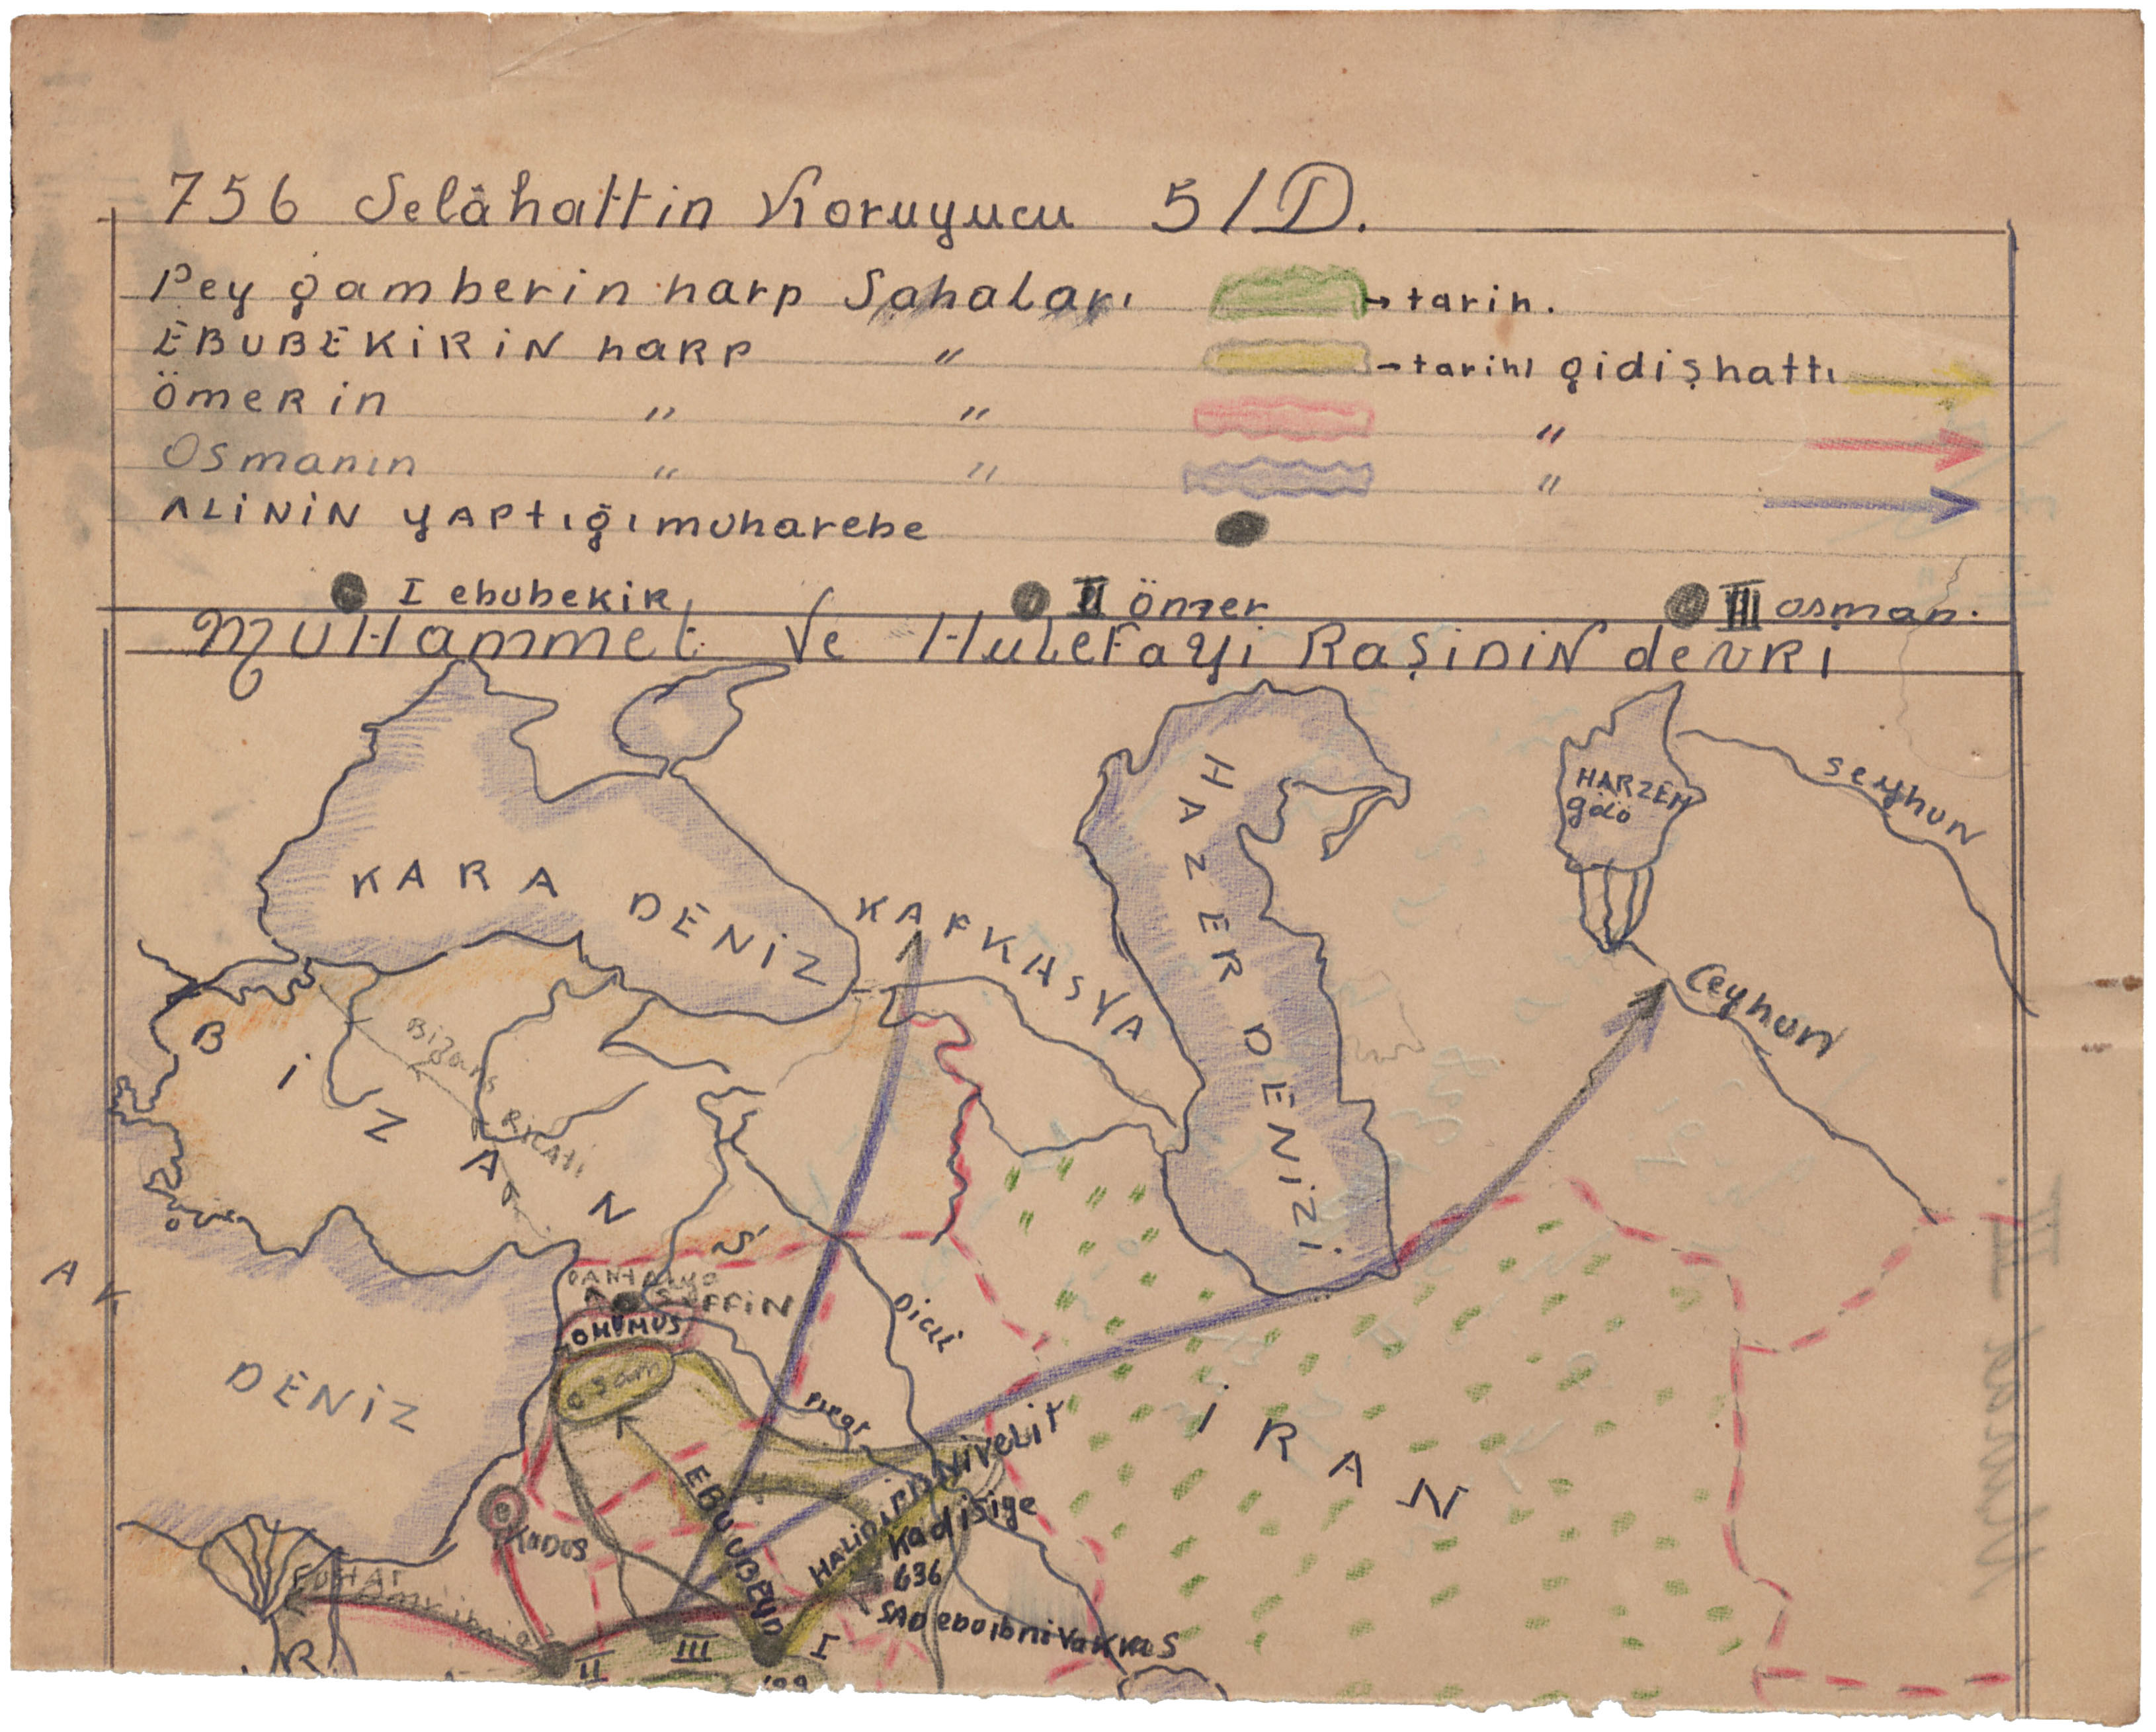 756 Selâhattin Koruyucu 5/D.
Peygamberin harp Sahaları → tarih.
EBUBEKİRİN harp " → tarihi gidiş hattı
ÖMERİN " " "
Osmanın " " "
ALİNİN YAPtığı muharebe
I ebubekir II ömer III osman.
Muhammet Ve Hulefayi RaşiDİN devri
KARA DENİZ
KAFKASYA
HAZER DENİZİ
HARZEM
gölü
Seyhun
Ceyhun
BİZANS
Bizans Ricati
AK
DENİZ
SIFFİN
Dicle
Fırat
İRAN
EBU UBEYD
HALİD İBNİ VELİT
Kadisiye
636
SAD ebu ibni Vakkas
KUDUS
II III I